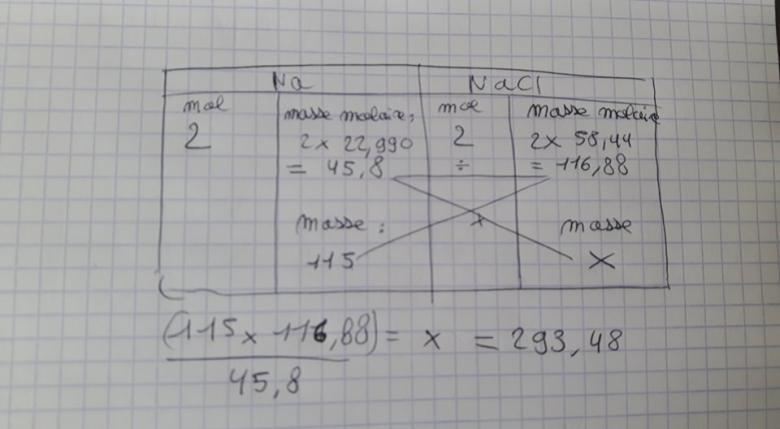 Na NaCl
mol masse molaire: mol masse molaire
2 2 x 22,990 2 2 x 58,44
= 45,8 ÷ = 116,88
masse : x masse
115 X
(115 x 116,88) = x = 293,48
45,8